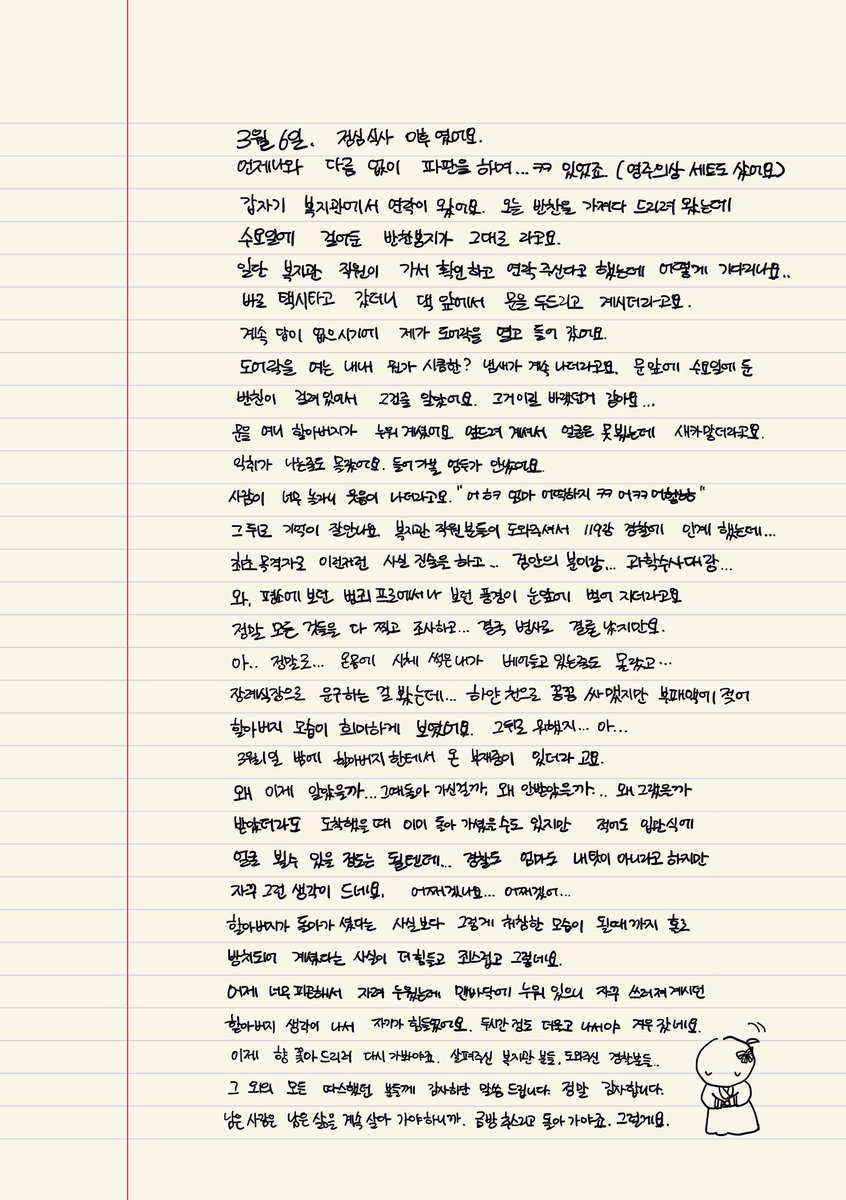 3월 6일. 점심식사 이후 였어요.
언제나와 다름 없이 파판을 하며...ㅋㅋ 있었죠. (영주의상 세트도 샀어요)
갑자기 복지관에서 연락이 왔어요. 오늘 반찬을 가져다 드리려 왔는데
수요일에 걸어둔 반찬봉지가 그대로 라고요.
일단 복지관 직원이 가서 확인하고 연락 주신다고 했는데 어떻게 기다리나요..
바로 택시타고 갔더니 댁 앞에서 문을 두드리고 계시더라고요.
계속 답이 없으시기에 제가 도어락을 열고 들어 갔어요.
도어락을 여는 내내 뭔가 시큼한? 냄새가 계속 나더라고요. 문앞에 수요일에 둔
반찬이 걸려있어서 그건줄 알았어요. 그거이길 바랬던거 같아요...
문을 여니 할아버지가 누워 계셨어요. 엎드려 계셔서 얼굴은 못뵀는데 새카맣더라고요.
악취가 나는줄도 몰랐어요. 들어가볼 엄두가 안났어요.
사람이 너무 놀라니 웃음이 나더라고요. "어 ㅎㅋ 엄마 어떡하지 ㅋㅋ 어ㅋㅋ"
그 뒤로 기억이 잘안나요. 복지관 직원분들이 도와주셔서 119랑 경찰에 인계 했는데...
최초 목격자로 이런저런 사실 진술을 하고... 검안의 분이랑... 과학수사대랑...
와, 평소에 보던 범죄 프로에서나 보던 풍경이 눈앞에 벌어 지더라고요
정말 모든 것들을 다 찍고 조사하고... 결국 병사로 결론 났지만요.
아.. 정말로... 온몸에 시체 썩은내가 베어들고 있는줄도 몰랐고...
장례식장으로 운구하는 걸 봤는데... 하얀 천으로 꽁꽁 싸맸지만 부패액에 젖어
할아버지 모습이 희미하게 보였어요. 그뒤로 뭐했지... 아...
3월1일 밤에 할아버지한테서 온 부재중이 있더라 고요.
왜 이제 알았을까...그때돌아 가신걸까, 왜 안받았을까... 왜 그랬을까
받았더라도 도착했을 때 이미 돌아 가셨을수도 있지만 적어도 입관식에
얼굴 뵐수 있을 정도는 될텐데... 경찰도 엄마도 내탓이 아니라고 하지만
자꾸 그런 생각이 드네요. 어쩌겠나요... 어쩌겠어...
할아버지가 돌아가 셨다는 사실보다 그렇게 처참한 모습이 될때까지 홀로
방치되어 계셨다는 사실이 더 힘들고 죄스럽고 그렇네요.
어제 너무 피곤해서 자려 누웠는데 맨바닥에 누워 있으니 자꾸 쓰러져 계시던
할아버지 생각이 나서 자기가 힘들었어요. 두시간 정도 더 울고 나서야 겨우 잤네요.
이제 향 꽃아 드리러 다시 가봐야죠. 살펴주신 복지관 분들, 도와주신 경찰분들..
그 외의 모든 따스했던 분들께 감사하단 말씀 드립니다. 정말 감사합니다.
남은 사람은 남은 삶을 계속 살아 가야하니까. 금방 추스리고 돌아 가야죠. 그럴게요.